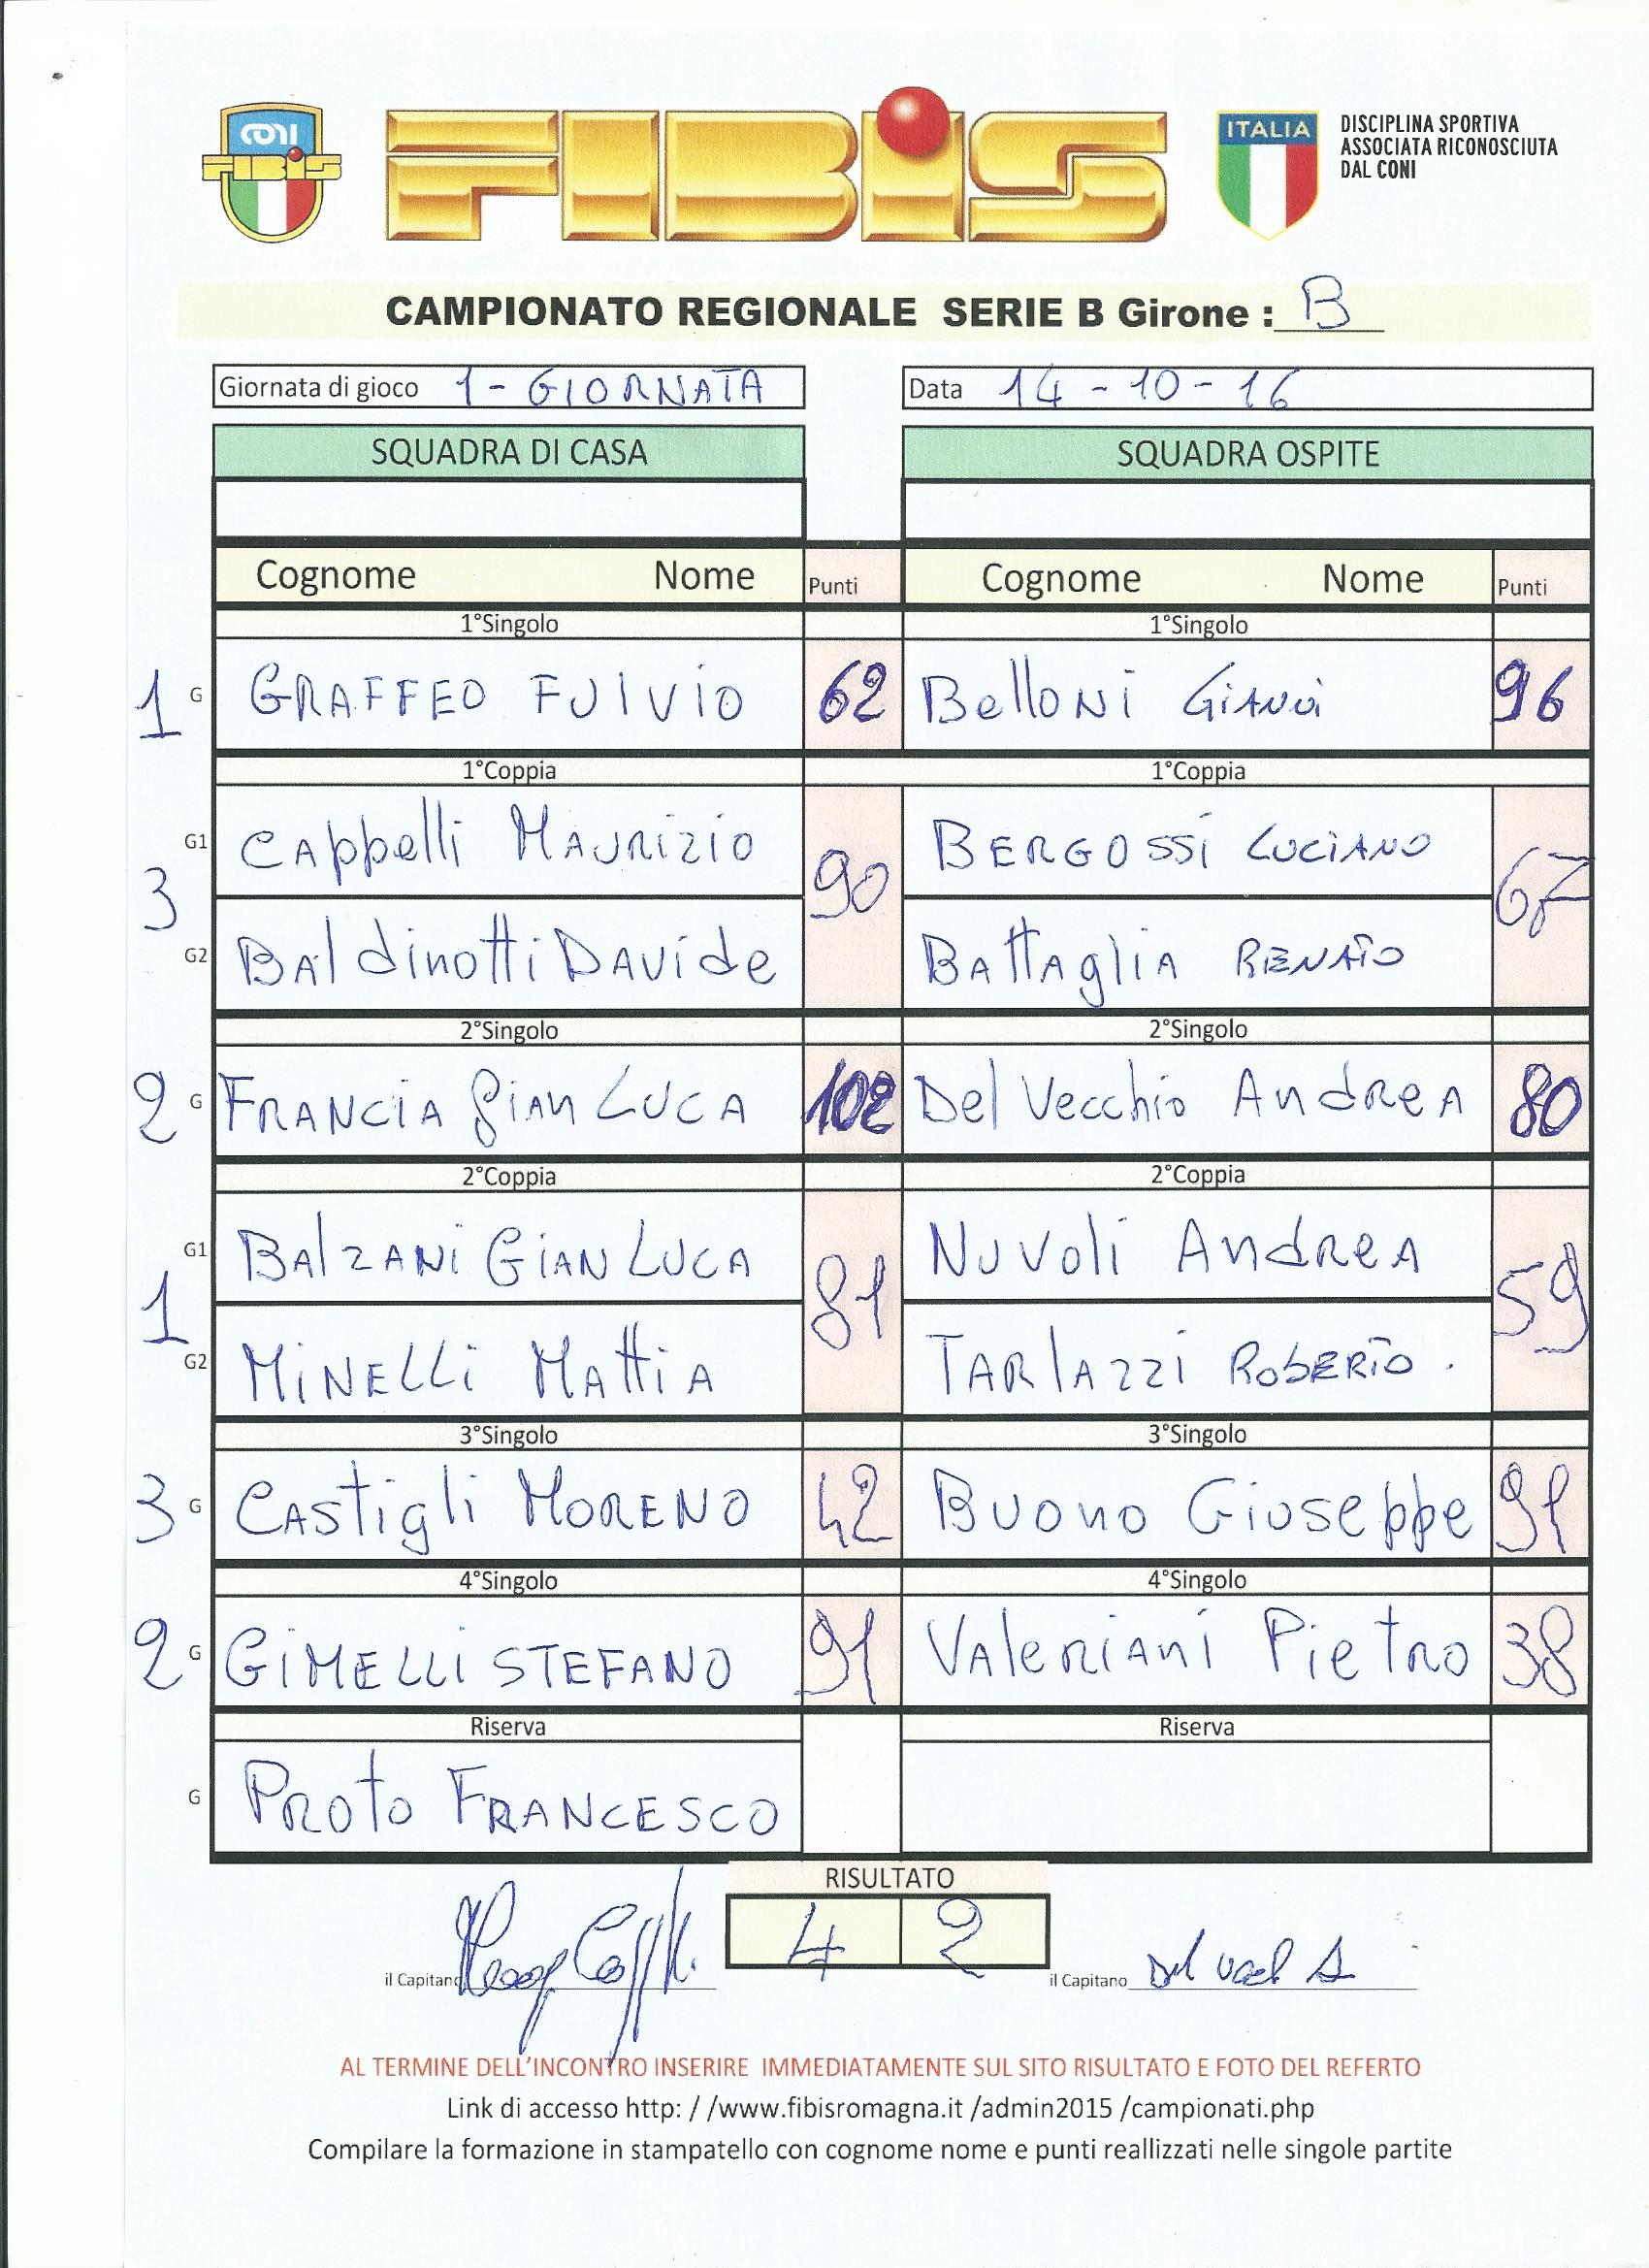 CONI
FIBiS
FIBiS
ITALIA
DISCIPLINA SPORTIVA
ASSOCIATA RICONOSCIUTA
DAL CONI
CAMPIONATO REGIONALE SERIE B Girone : B
Giornata di gioco 1 - GIORNATA Data 14 - 10 - 16
SQUADRA DI CASA SQUADRA OSPITE
Cognome Nome Punti Cognome Nome Punti
1°Singolo 1°Singolo
1 G GRAFFEO FULVIO 62 Belloni Gianni 96
1°Coppia 1°Coppia
G1 Cappelli MAURIZIO BERGOSSI LUCIANO
3 90 67
G2 BAldinotti DAVide BATTAGLIA RENATO
2°Singolo 2°Singolo
2 G FRANCIA Gian LUCA 102 Del Vecchio AndReA 80
2°Coppia 2°Coppia
G1 BAlZANi GIAN LUCA NUVoli AndReA
1 81 59
G2 MiNELLi MAttiA TARLAZZI ROBERTO .
3°Singolo 3°Singolo
3 G CAStigli MORENO 42 Buono Giuseppe 91
4°Singolo 4°Singolo
2 G GiMELLi STEFANO 91 VAleriani Pietro 38
Riserva Riserva
G PROTO FRANCESCO
RISULTATO
4 2
il Capitano il Capitano
AL TERMINE DELL'INCONTRO INSERIRE IMMEDIATAMENTE SUL SITO RISULTATO E FOTO DEL REFERTO
Link di accesso http: / /www.fibisromagna.it /admin2015 /campionati.php
Compilare la formazione in stampatello con cognome nome e punti reallizzati nelle singole partite